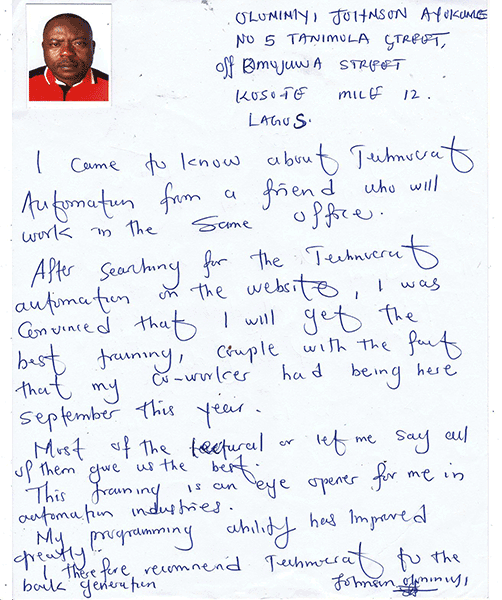 OLUMINIYI JOHNSON AYOKUNLE
NO 5 TANIMOLA STREET,
off Bmyjuwa STREET
KOSOTE MILE 12.
LAGOS.
I came to know about Technocrat
Automation from a friend who will
work in the same office.
After searching for the Technocrat
automation on the website, I was
Convinced that I will get the
best training, couple with the fact
that my co-worker had being here
September this year.
Most of the lectural or let me say all
of them give us the best.
This training is an eye opener for me in
automation industries.
My programming ability has Improved
greatly.
I therefore recommend Technocrat to the
back generation
Johnson oluminiyi